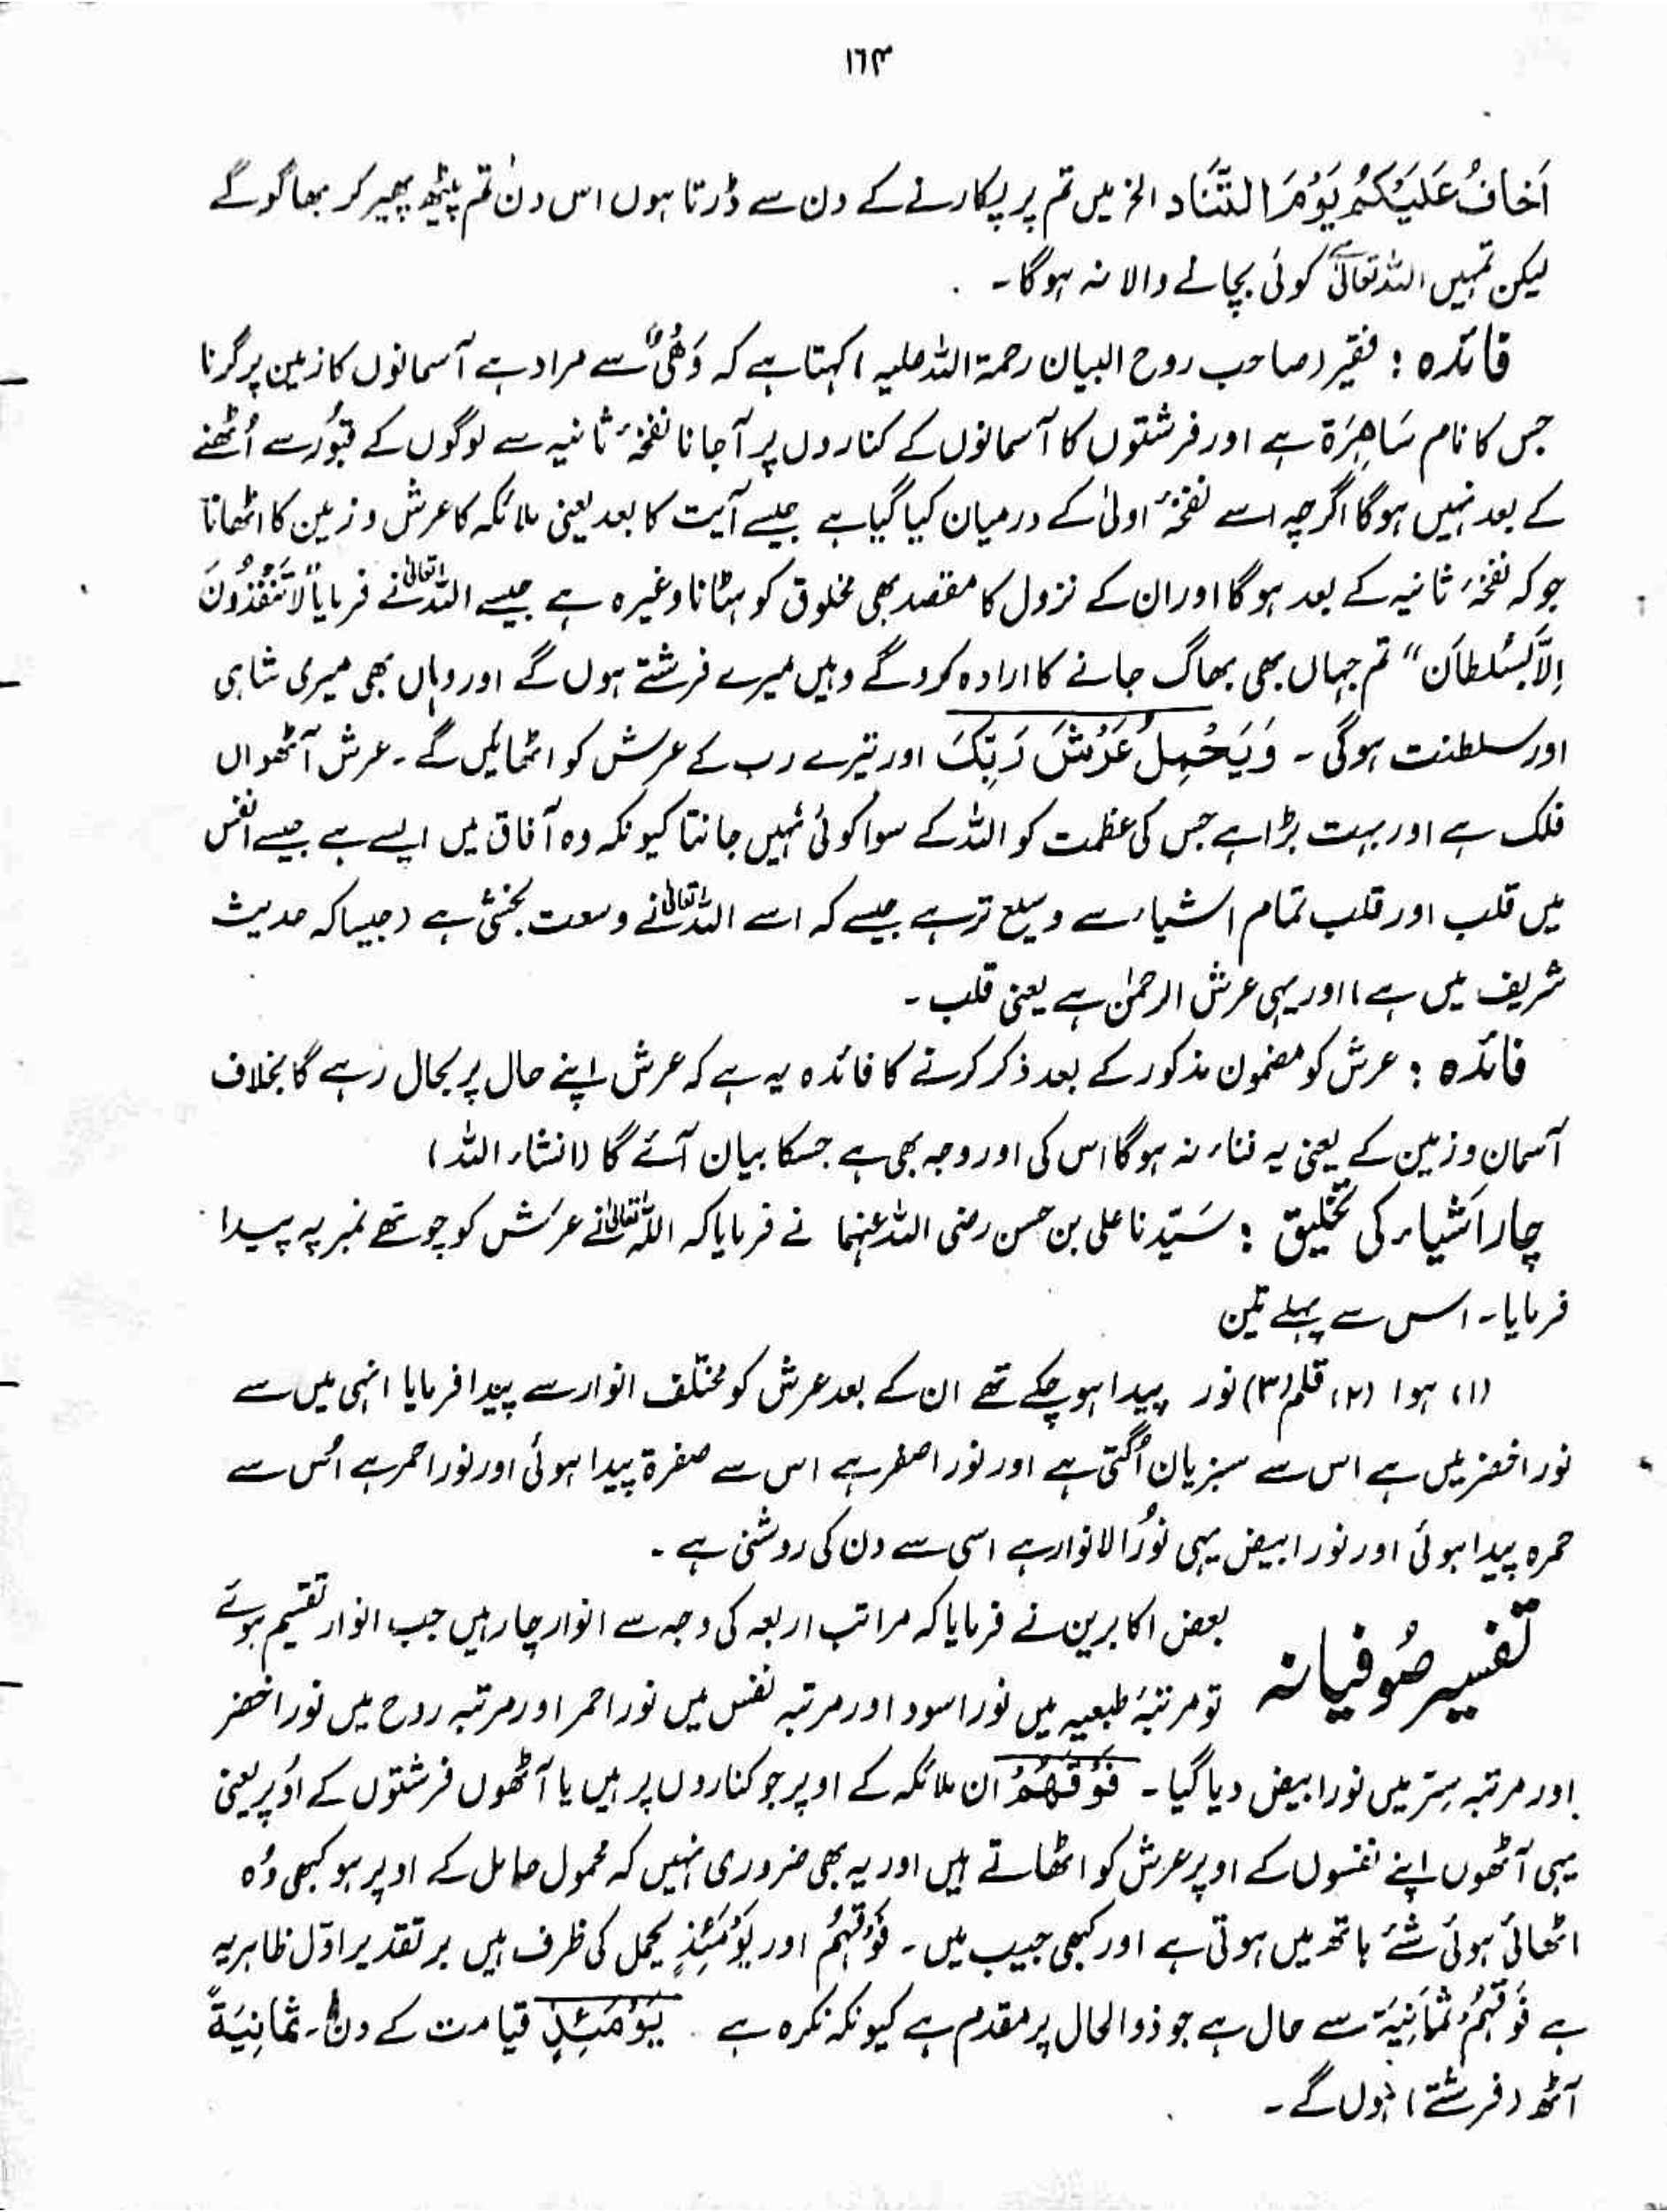 ۱۶۴
اَخافُ عَلَیْکُمْ یَوْمَ التَّنَاد الخ میں تم پر پکارنے کے دن سے ڈرتا ہوں اس دن تم پیٹھ پھیر کر بھاگو گے
لیکن تمہیں اللہ تعالیٰ کوئی بچانے والا نہ ہوگا۔
فائدہ : فقیر (صاحب روح البیان رحمۃ اللہ علیہ) کہتا ہے کہ وَھْیٌ سے مراد ہے آسمانوں کا زمین پر گرنا
جس کا نام سَاھِرَۃ ہے اور فرشتوں کا آسمانوں کے کناروں پر آجانا نفخۂ ثانیہ سے لوگوں کے قبُور سے اُٹھنے
کے بعد نہیں ہوگا اگرچہ اسے نفخۂ اولیٰ کے درمیان کیا گیا ہے جیسے آیت کا بعد یعنی ملائکہ کا عرش و زمین کا اٹھانا
جو کہ نفخۂ ثانیہ کے بعد ہوگا اور ان کے نزول کا مقصد بھی مخلوق کو ہٹانا وغیرہ ہے جیسے اللہ تعالیٰ نے فرمایا "لَا تَنْفُذُوْنَ
اِلَّا بِسُلطاَن" تم جہاں بھی بھاگ جانے کا ارادہ کرو گے وہیں میرے فرشتے ہوں گے اور وہاں بھی میری شاہی
اور سلطنت ہوگی۔ وَیَحْمِلُ عَرْشَ رَبِّکَ اور تیرے رب کے عرش کو اٹھالیں گے۔ عرش آٹھواں
فلک ہے اور بہت بڑا ہے جس کی عظمت کو اللہ کے سوا کوئی نہیں جانتا کیونکہ وہ آفاق میں ایسے ہے جیسے انفس
میں قلب اور قلب تمام اشیاء سے وسیع تر ہے جیسے کہ اسے اللہ تعالیٰ نے وسعت بخشی ہے (جیسا کہ حدیث
شریف میں ہے) اور یہی عرش الرحمٰن ہے یعنی قلب۔
فائدہ : عرش کو مضمون مذکور کے بعد ذکر کرنے کا فائدہ یہ ہے کہ عرش اپنے حال پر بحال رہے گا بخلاف
آسمان و زمین کے یعنی یہ فناء نہ ہوگا اس کی اور وجہ بھی ہے جسکا بیان آئے گا (انشاء اللہ)
چار اَشیاء کی تخلیق : سَیّدنا علی بن حسن رضی اللہ عنہما نے فرمایا کہ اللہ تعالیٰ نے عرش کو چوتھے نمبر پہ پیدا
فرمایا۔ اس سے پہلے تین
(۱) ہوا (۲) قلم (۳) نور پیدا ہو چکے تھے ان کے بعد عرش کو مختلف انوار سے پیدا فرمایا انہی میں سے
نور اخضر یں ہے اس سے سبزیان اُگتی ہے اور نور اصفر ہے اس سے صفرۃ پیدا ہوئی اور نور احمر ہے اُس سے
حمرہ پیدا ہوئی اور نور ابیض یہی نورُ الانوار ہے اسی سے دن کی روشنی ہے۔
تفسیر صُوفیانہ بعض اکابرین نے فرمایا کہ مراتب اربعہ کی وجہ سے انوار چار ہیں جب انوار تقسیم ہوئے
تو مرتبۂ طبعیہ میں نور اسود اور مرتبہ نفس میں نور احمر اور مرتبہ روح میں نور اخضر
اور مرتبہ سِتر میں نور ابیض دیا گیا۔ فَوْقَھُمْ ان ملائکہ کے اوپر جو کناروں پر ہیں یا آٹھوں فرشتوں کے اُوپر یعنی
یہی آٹھوں اپنے نفسوں کے اوپر عرش کو اٹھاتے ہیں اور یہ بھی ضروری نہیں کہ محمول حامل کے اوپر ہو کبھی وُہ
اٹھائی ہوئی شئے ہاتھ میں ہوتی ہے اور کبھی جیب میں۔ فَوْقَہُمْ اور یَوْمَئِذٍ یحمل کی ظرف ہیں بر تقدیر اوّل ظاہر یہ
ہے فَوقَہُمْ ثمٰانِیَۃ سے حال ہے جو ذوالحال پر مقدم ہے کیونکہ نکرہ ہے۔ یَوْمَئِذٍ قیامت کے دن۔ ثَمَانِیَۃٌ
آٹھ (فرشتے) ہوں گے۔